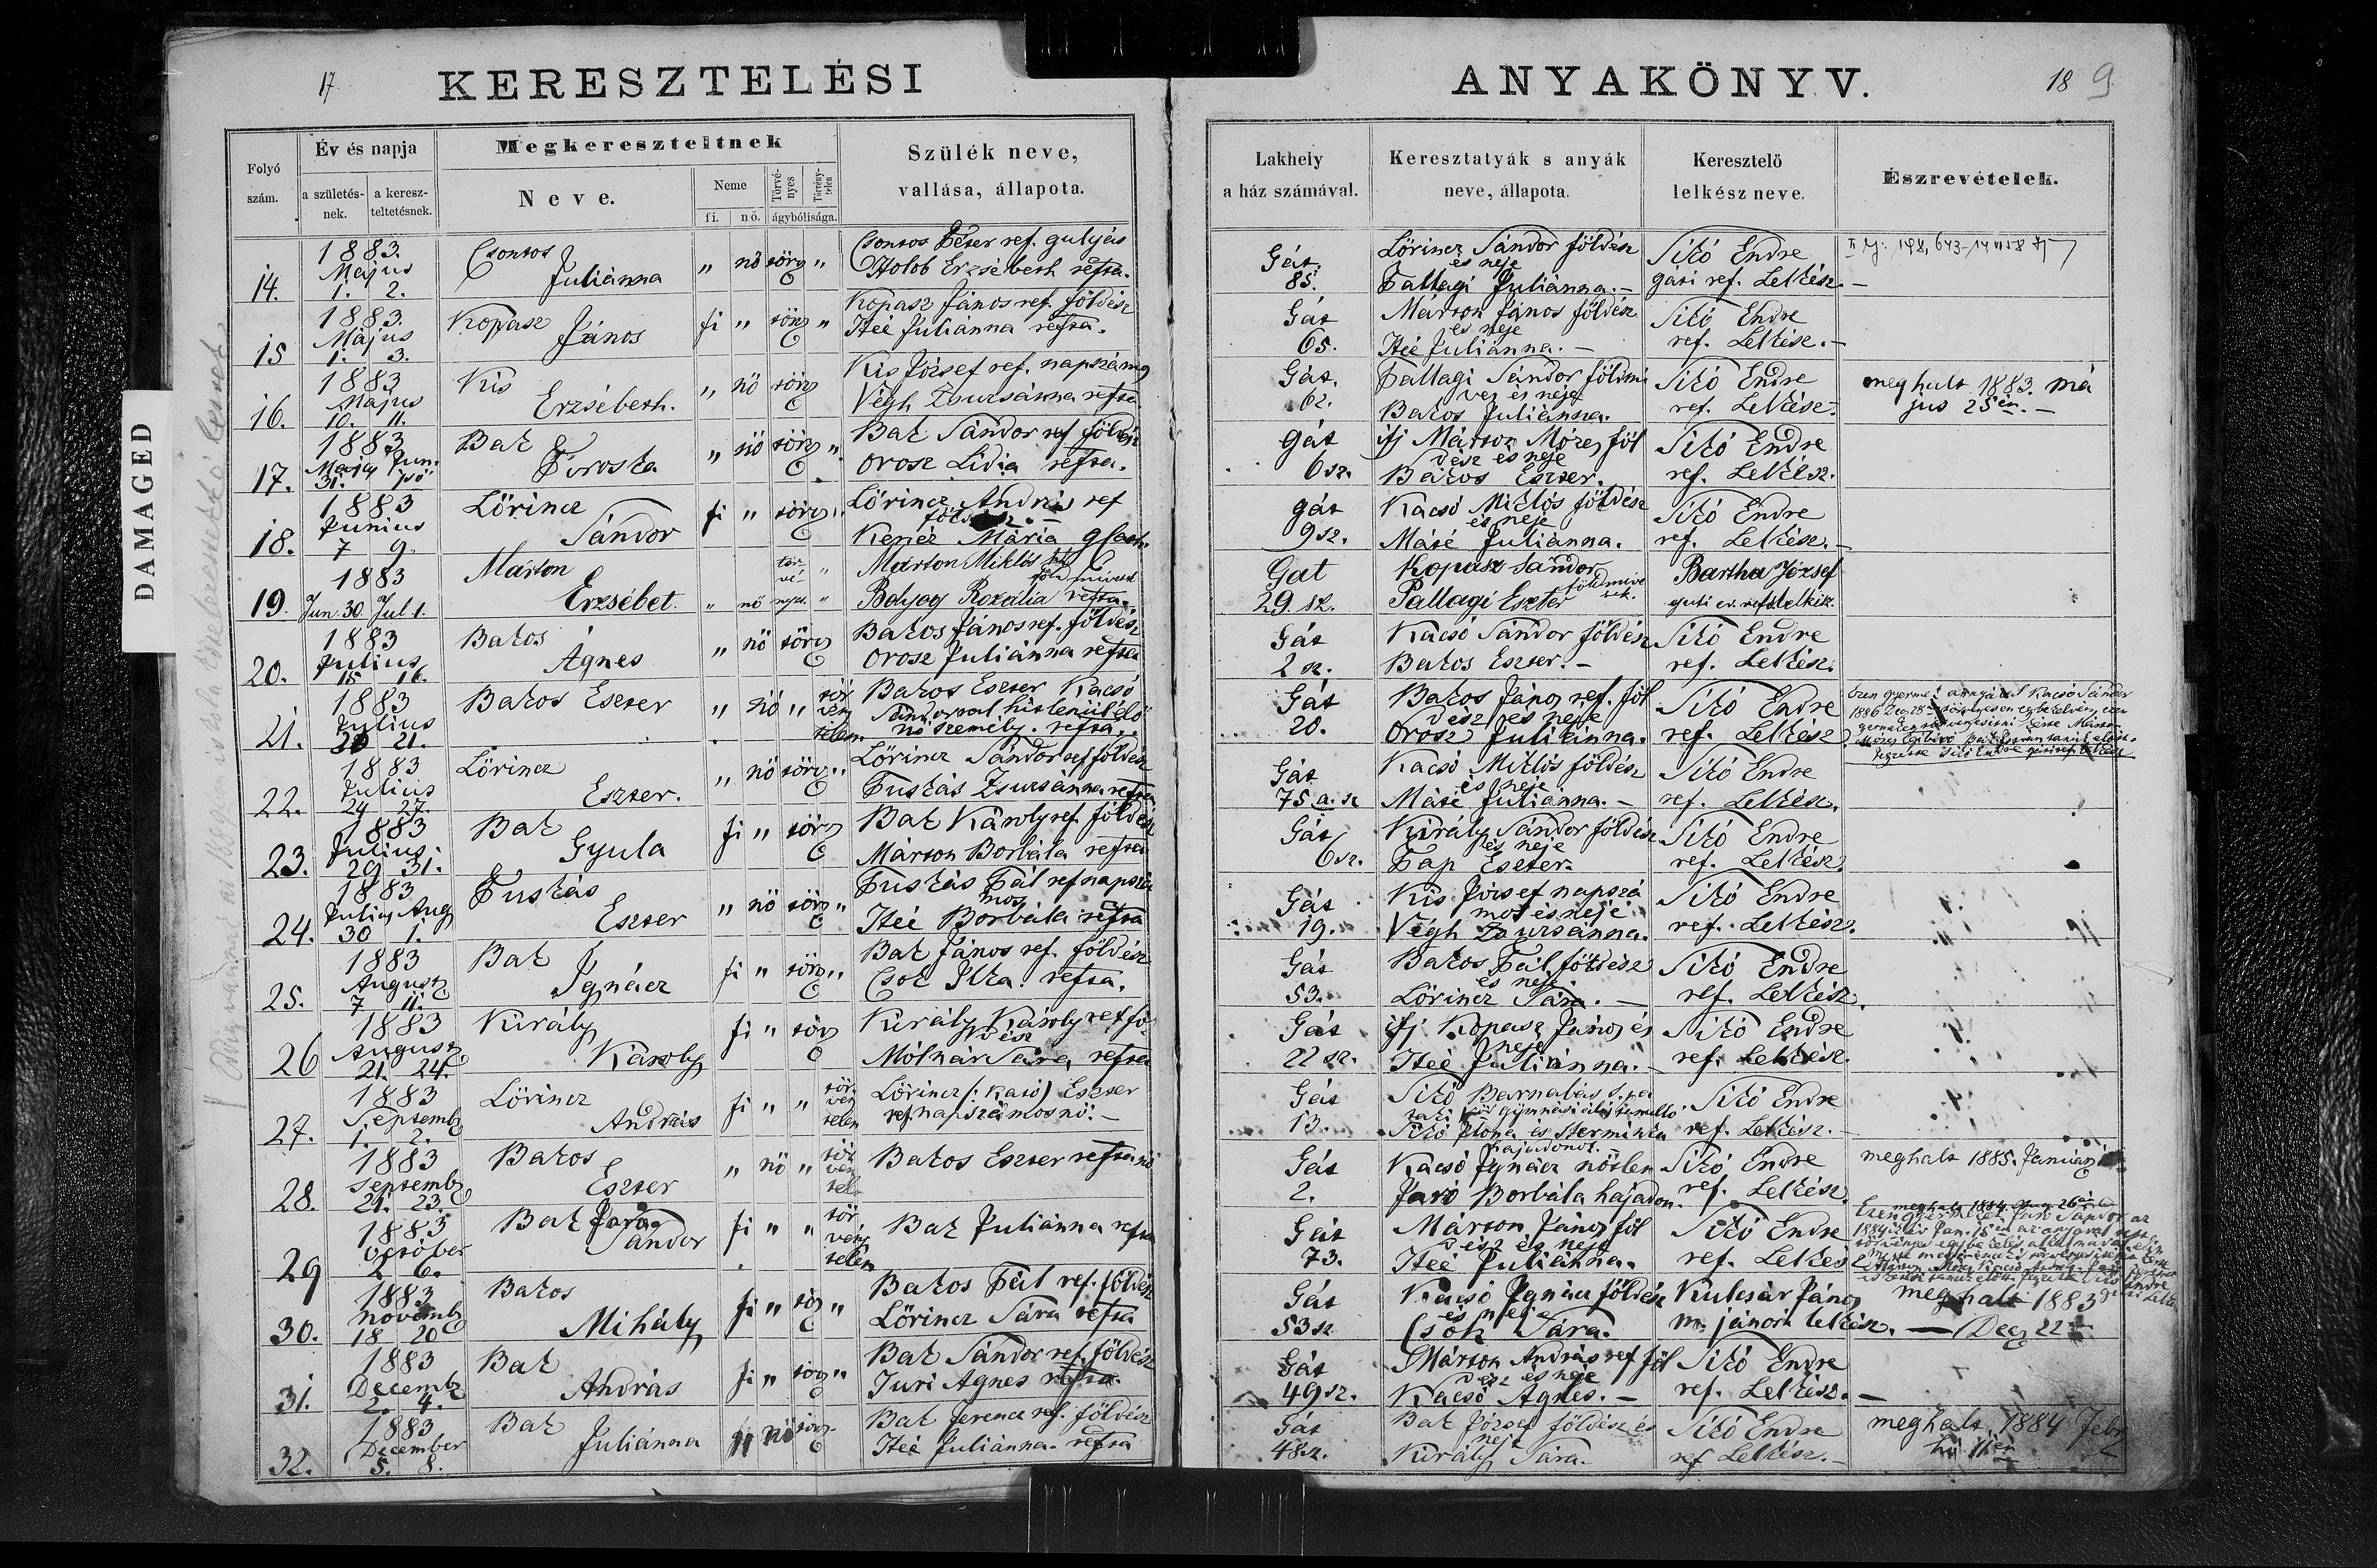 17
KERESZTELÉSI
ANYAKÖNYV.
18 9
DAMAGED
Folyó szám.
Év és napja
a születés-nek.
a keresz-teltetésnek.
Megkereszteltnek
Neve.
Neme
fi.
nő.
Törvé-nyes
Törvény-telen
ágybólisága.
Szülék neve,
vallása, állapota.
Lakhely
a ház számával.
Keresztatyák s anyák
neve, állapota.
Keresztelő
lelkész neve.
Észrevételek.
14. 1883. Május 1. 2. Csontos Juliánna „ nő törv „ Csontos Péter ref. gulyás Holob Erzsébeth refta. Gát. 85. Lőrincz Sándor földész és neje Pallagi Juliánna.– Sikó Endre gáti ref. Lelkész.–
15 1883. Május 1. 3. Kopasz János fi „ törv „ Kopasz János ref. földész Iteé Juliánna refta. Gát 65. Márton János földész és neje Iteé Juliánna.– Sikó Endre ref. Lelkész.–
16. 1883 Május 10. 11. Kis Erzsébeth. „ nő törv Kis József ref. napszámos Végh Zsuzsánna refta. Gát. 62. Pallagi Sándor földmí ves és neje Bakos Juliánna. Sikó Endre ref. Lelkész.– meghalt 1883. má jus 25én.–
17. 1883 Május Jun. 31. Bak Piroska „ nő törv „ Bak Sándor ref földész Orosz Lidia refta. Gát 6 sz. ifj Márton Mózes föl dész és neje Bakos Eszter. Sikó Endre ref. Lelkész.
18. 1883 Junius 7 9. Lőrincz Sándor fi „ törv „ Lőrincz András ref Mária Gát 9 sz. Kacsó Miklós földész és neje Máté Juliánna. Sikó Endre ref. Lelkész.–
19. 1883 Jun. 30. Jul 1. Marton Erzsébet. „ nő tör vé nyes. „ Marton Miklós ref földmívest Bolyog Rozália refta. Gat 29. sz. Kopasz Sándor földmíve sek. Pallagi Eszter Bartha József guti ev. ref. lelkész.
20. 1883 Julius 15 16. Bakos Ágnes „ nő törv Bakos János ref. földész Orosz Juliánna refta Gát 2 sz. Kacsó Sándor földész Bakos Eszter.– Sikó Endre ref. Lelkész.
21. 1883 Julius 20 21. Bakos Eszter „ nő „ tör vény telen Bakos Eszter Kacsó Sándorral hitlenül élő nő személy. refta. Gát 20. Bakos János ref. föl dész és neje Orosz Juliánna. Sikó Endre ref. Lelkész Ezen gyermek annyával Kacsó Sándor 1886
22. 1883 Julius 24 27. Lőrincz Eszter. „ nő törv „ Lőrincz Sándor ref földész Puskás Zsuzsánna refta Gát 75 a. sz Kacsó Miklós földész és neje Máté Juliánna.– Sikó Endre ref. Lelkész.
23. 1883 Julius. 29 31. Bak Gyula fi „ törv Bak Károly ref. földész Márton Borbála refta Gát 6 sz. Király Sándor földész és neje Pap Eszter. Sikó Endre ref. Lelkész
24. 1883 Julius Aug 30 1. Puskás Eszter „ nő törv „ Puskás Pál ref napszá mos Iteé Borbála refta Gát 19. Kis József napszá mos és neje Végh Zsuzsánna. Sikó Endre ref. Lelkész.
25. 1883 August 7 11. Bak Ignácz fi „ törv „ Bak János ref. földész Csok Ilka. refta. Gát 53. Bakos Pál földész és neje Lőrincz Sára.– Sikó Endre ref. Lelkész.
26 1883 August 21. 24. Király Károly fi „ törv Király Károly ref föl dész Molnár Sára refta Gát 22 sz. ifj. Kopasz János és neje Iteé Juliánna.– Sikó Endre ref. Lelkész.
27. 1883 Septemb 1. 2. Lőrincz András fi „ „ tör vény telen Lőrincz (: Kacsó) Eszter ref napszámosnő.– Gát 13. Sikó Barnabás Sikó Ilona és Hermina hajadonok.– Sikó Endre ref. Lelkész.–
28. 1883 Septemb 21. 23. Bakos Eszter „ nő „ tör vény tel. Bakos Eszter refta nő Gát 2. Kacsó Ignácz nőtlen Jaró Borbála hajadon. Sikó Endre ref. Lelkész. meghalt 1885. Január
29 1883 October 2 6. Bak Jaró Sándor fi „ „ tör vény telen Bak Juliánna refta Gát 73. Márton János föl dész és neje Iteé Juliánna. Sikó Endre ref. Lelkész
30. 1883 Novemb 18 20 Bakos Mihály fi „ törv „ Bakos Pál ref. földész Lőrincz Sára refta Gát 53 sz Kacsó Ignácz földész és neje Csók Sára. Kulcsár János m. jánosi lelkész.– meghalt 1883 Dec 22
31. 1883 Decemb 2. 4. Bak András fi „ törv „ Bak Sándor ref. földész Turi Agnes refta. Gát 49 sz. Márton András ref föl dész és neje Kacsó Agnes.– Sikó Endre ref. Lelkész.–
32. 1883 December 5. 8. Bak Juliánna nő törv Bak Ferencz ref. földész Iteé Juliánna. refta Gát 48 sz. Bak József földész és neje Király Sára. Sikó Endre ref Lelkész.– meghalt 1884 Febr hó 11én